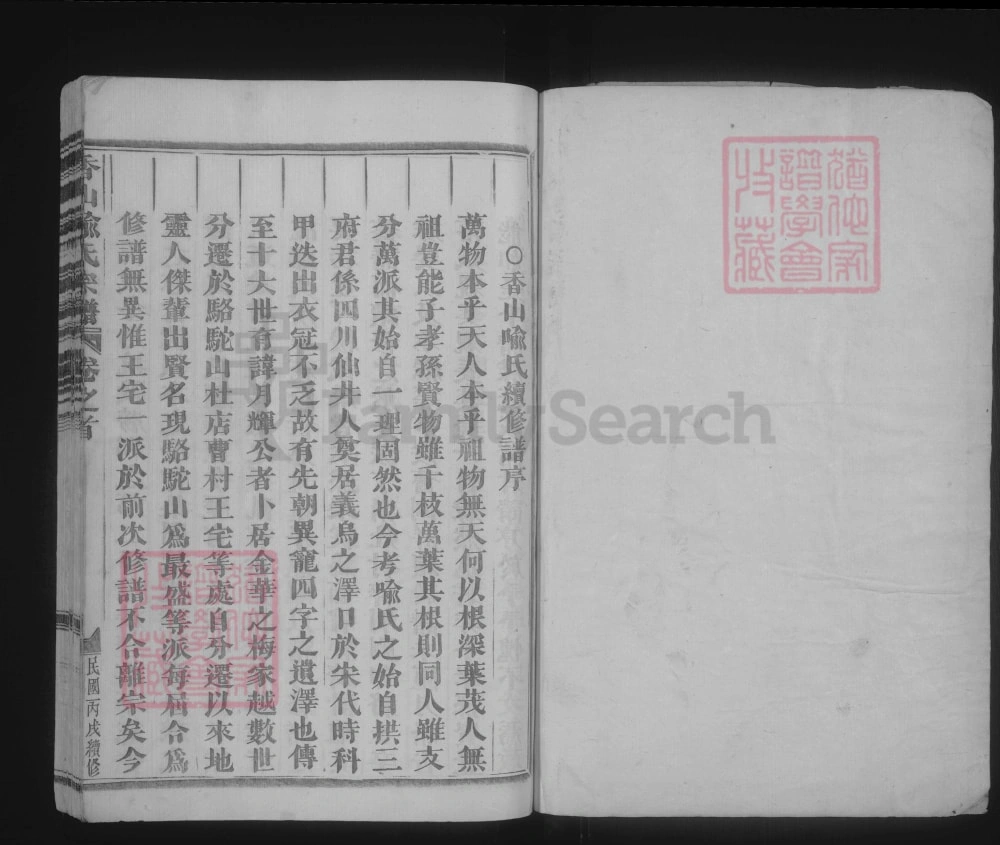 猶他家
譜學會
收藏
○香山喻氏續修譜序
萬物本乎天人本乎祖物無天何以根深葉茂人無
祖豈能子孝孫賢物雖千枝萬葉其根則同人雖支
分萬派其始自一理固然也今考喻氏之始自拱三
府君係四川仙井人奠居義烏之澤口於宋代時科
甲迭出衣冠不乏故有先朝異寵四字之遺澤也傳
至十大世有諱月輝公者卜居金華之梅家越數世
分遷於駱駝山杜店曹村王宅等處自分遷以來地
靈人傑輩出賢名現駱駝山爲最盛等派每屆合爲
修譜無異惟王宅一派於前次修譜不合離宗矣今
香山喻氏宗譜 卷之首
民國丙戌續修
猶他家
譜學會
收藏
FamilySearch